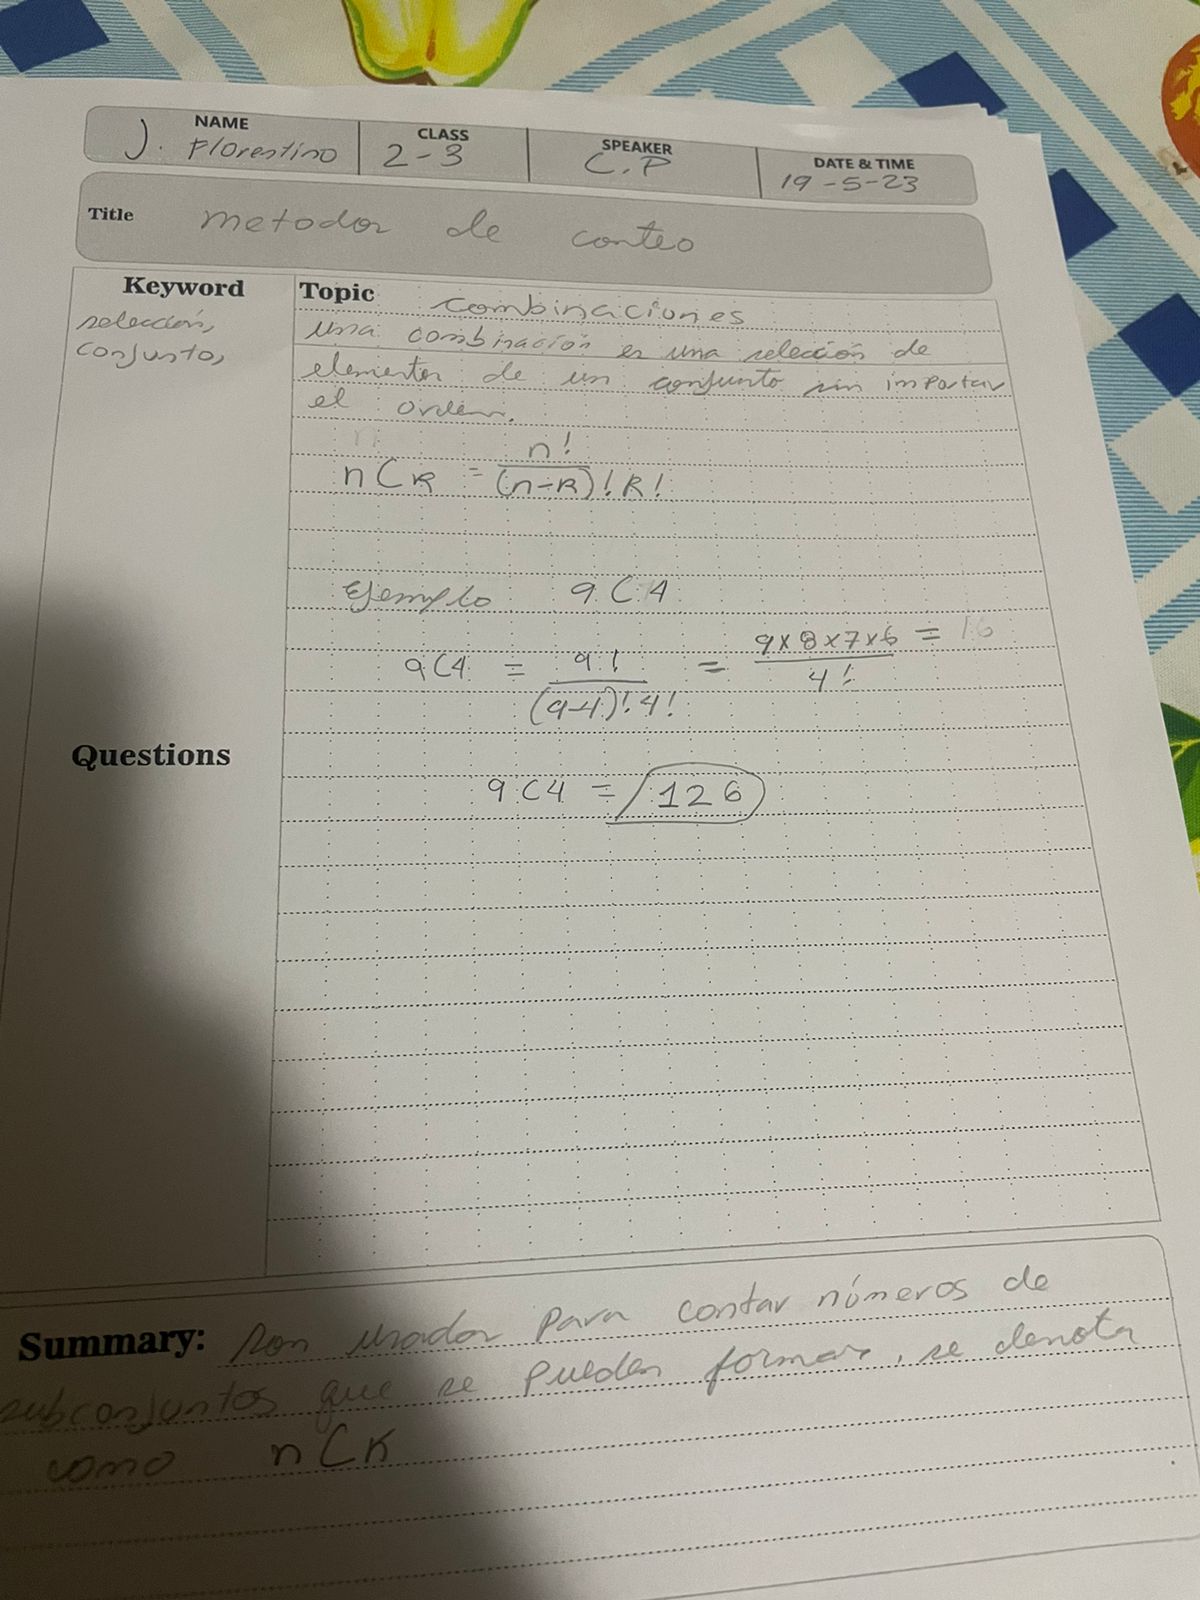 NAME CLASS SPEAKER DATE & TIME
J. Florentino 2-3 C.P 19-5-23
Title metodos de conteo
Keyword
selección,
conjunto,
Topic combinaciones
una combinación es una selección de
elementos de un conjunto sin importar
el orden.
nCR = n! / (n-R)! R!
Ejemplo 9C4
9C4 = 9! / (9-4)! 4! = 9x8x7x6 / 4! = 16
Questions
9C4 = 126
Summary: son usados para contar números de
subconjuntos que se pueden formar, se denota
como nCK